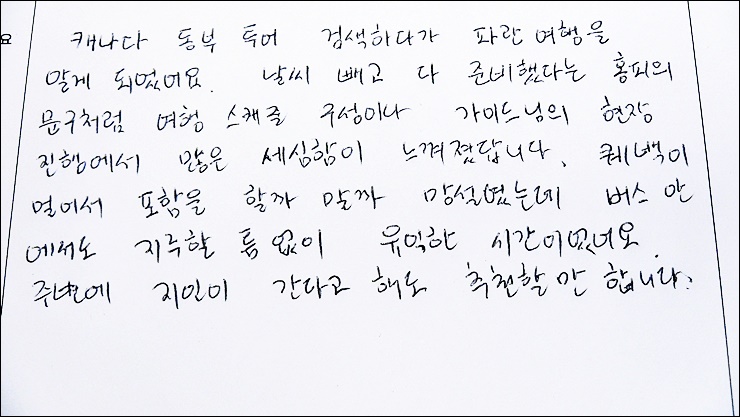 요
캐나다 동부 투어 검색하다가 파란여행을
알게 되었어요. 날씨 빼고 다 준비했다는 홍피의
문구처럼 여행 스캐줄 구성이나 가이드님의 현장
진행에서 많은 세심함이 느껴졌답니다. 퀘백이
멀어서 포함을 할까 말까 망설였는데 버스 안
에서도 지루할 틈 없이 유익한 시간이었어요.
주변에 지인이 간다고 해도 추천할만 합니다.